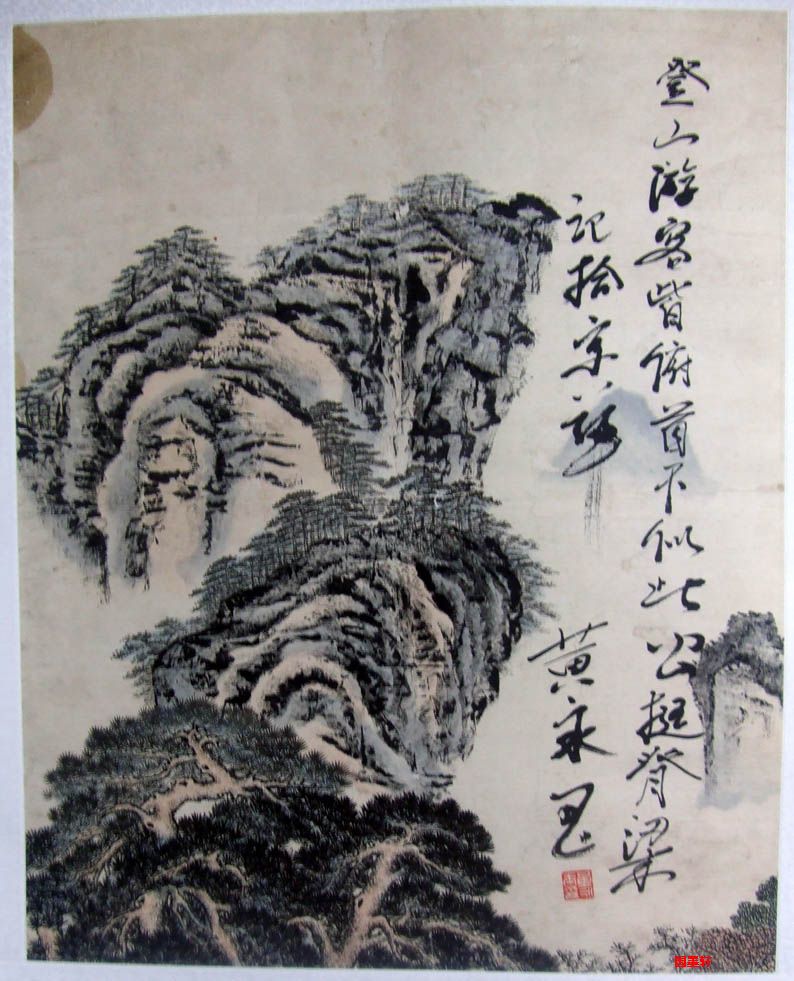 登山游客皆俯首不似此公挺脊梁
记拾
黄永